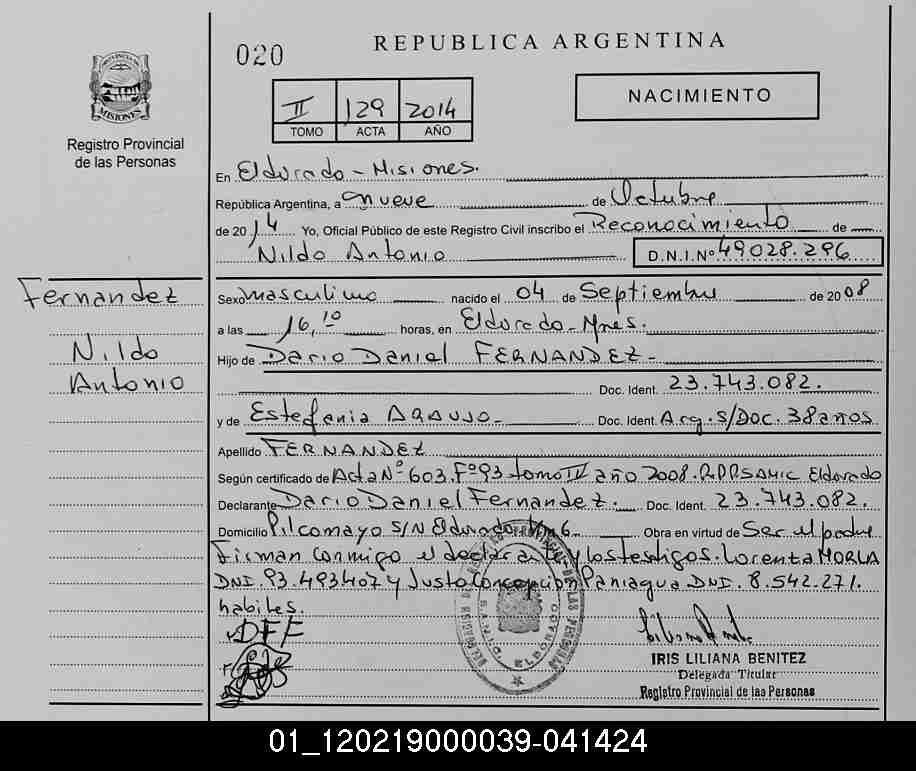 020
REPUBLICA ARGENTINA
PROVINCIA DE
MISIONES
II 129 2014
TOMO ACTA AÑO
NACIMIENTO
Registro Provincial
de las Personas
En Eldorado - Misiones.
República Argentina, a nueve de Octubre
de 2014 Yo, Oficial Público de este Registro Civil inscribo el Reconocimiento de
Nildo Antonio D.N.I.Nº 49028.296
Fernandez
Nildo
Antonio
Sexo masculino nacido el 04 de Septiembre de 2008
a las 16,10 horas, en Eldorado - Mnes.
Hijo de Dario Daniel FERNANDEZ -
Doc. Ident. 23.743.082.
y de Estefania ARAUJO - Doc. Ident. Arg. s/Doc. 38 años
Apellido FERNANDEZ
Según certificado de Acta Nº 603. Fº 93 tomo IV año 2008. Eldorado
Declarante Dario Daniel Fernandez. Doc. Ident. 23.743.082.
Domicilio Pilcomayo S/N Eldorado Km 6 Obra en virtud de Ser el padre
Firman conmigo el declarante y los testigos. Lorenta MORLA
DNI. 93.493407 y Justo Concepción Paniagua DNI. 8.542.271.
habiles.
DFF
ELDORADO
IRIS LILIANA BENITEZ
Delegada Titular
Registro Provincial de las Personas
01_120219000039-041424